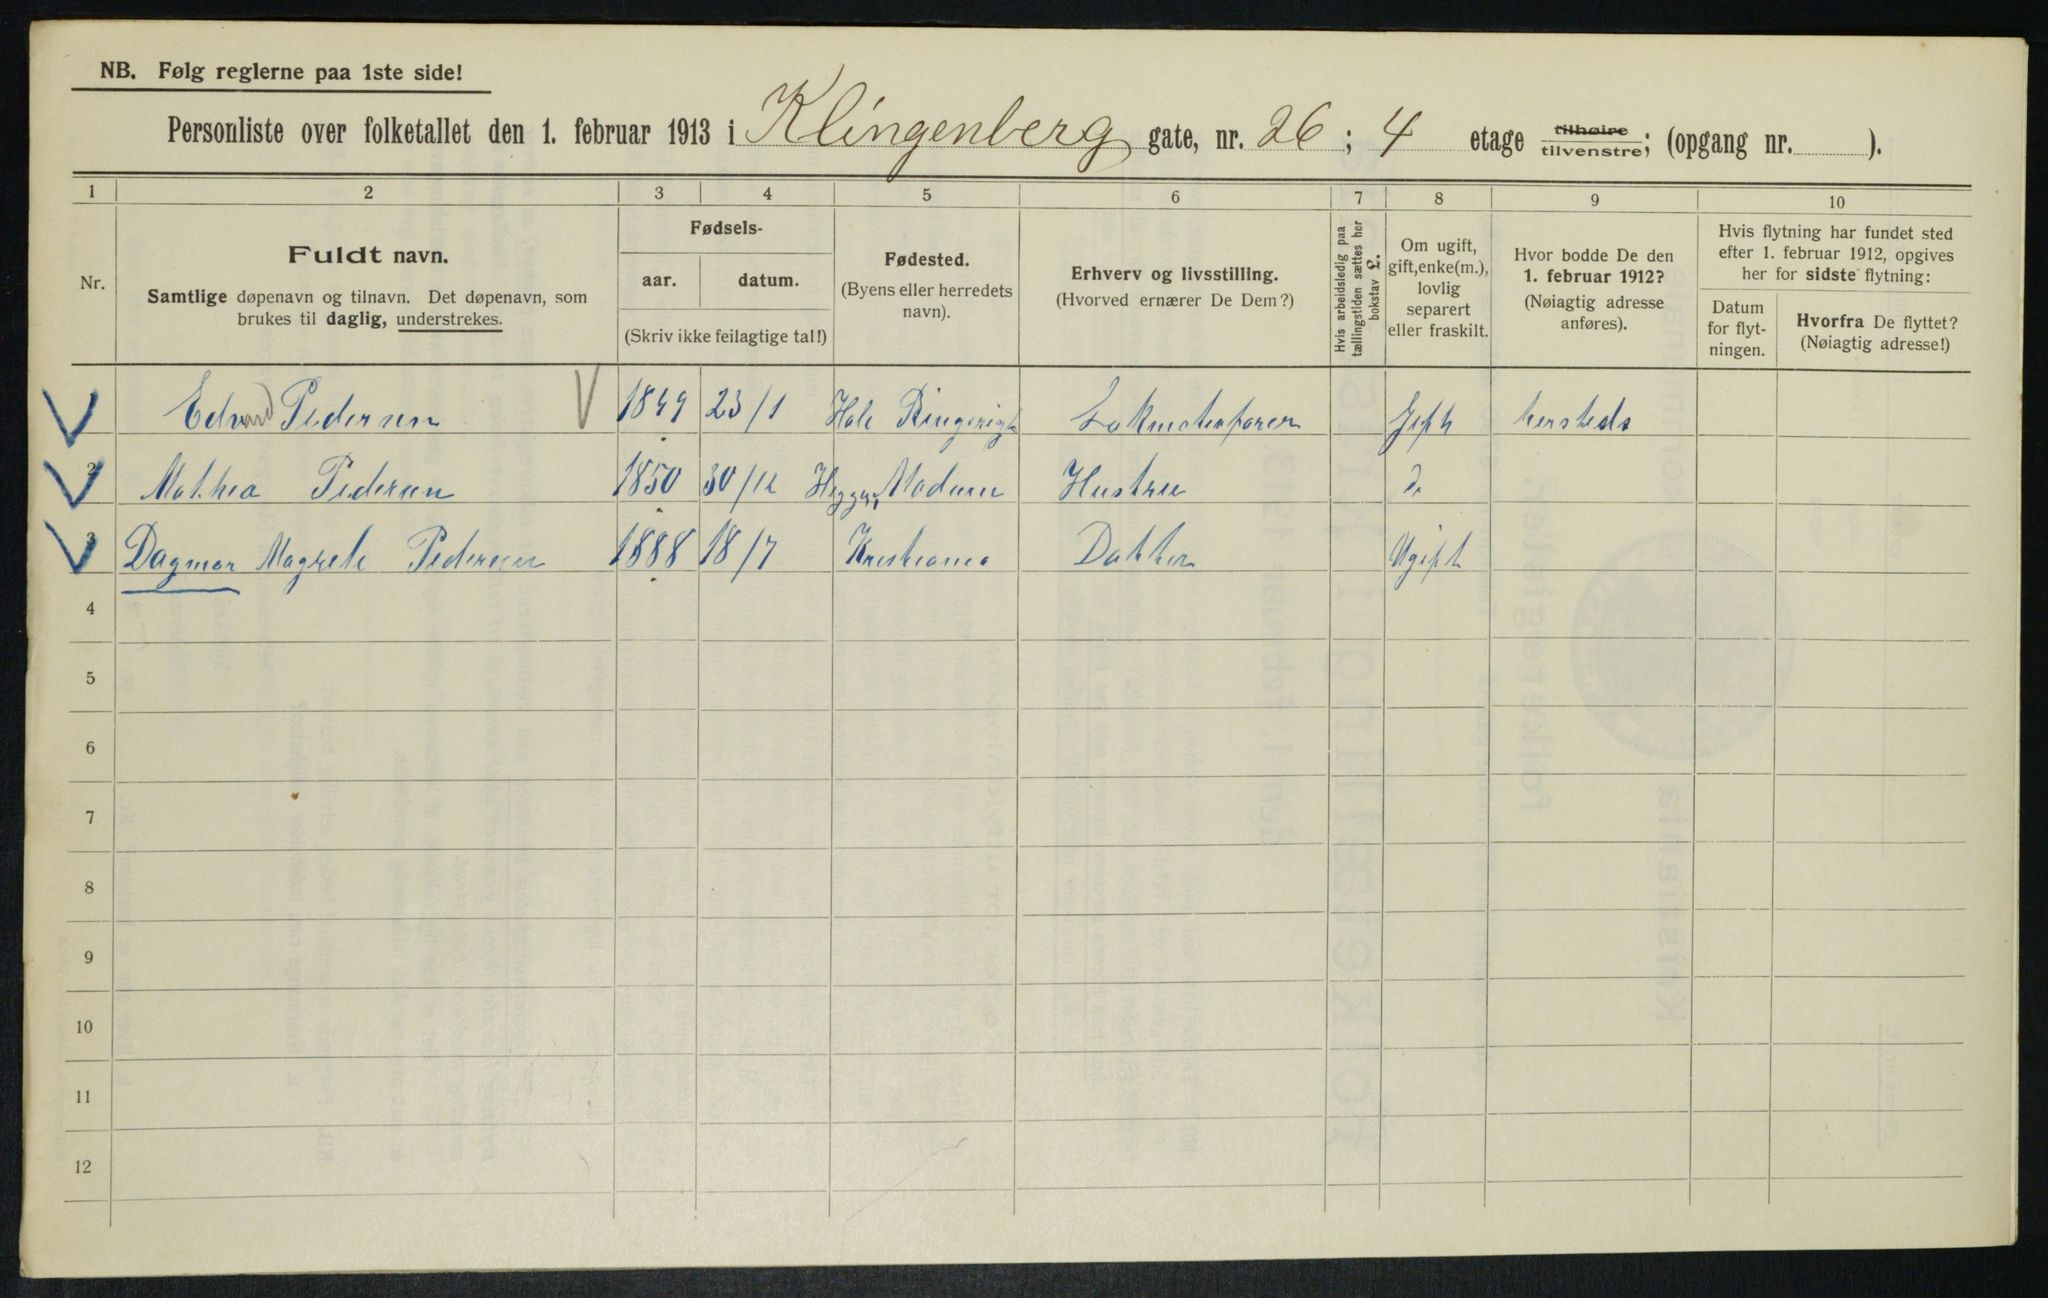 NB. Følg reglerne paa 1ste side!
Personliste over folketallet den 1. februar 1913 i Klingenberg gate, nr. 26; 4 etage tilhøire tilvenstre; (opgang nr. ).
1 2 3 4 5 6 7 8 9 10
Nr.
Fuldt navn.
Samtlige døpenavn og tilnavn. Det døpenavn, som
brukes til daglig, understrekes.
Fødsels-
aar. datum.
(Skriv ikke feilagtige tal!)
Fødested.
(Byens eller herredets
navn).
Erhverv og livsstilling.
(Hvorved ernærer De Dem?)
Hvis arbeidsledig paa
tællingstiden sættes her
bokstav L.
Om ugift,
gift, enke(m.),
lovlig
separert
eller fraskilt.
Hvor bodde De den
1. februar 1912?
(Nøiagtig adresse
anføres).
Hvis flytning har fundet sted
efter 1. februar 1912, opgives
her for sidste flytning:
Datum
for flyt-
ningen.
Hvorfra De flyttet?
(Nøiagtig adresse!)
Edvard Pedersen 1849 23/1 Hole Ringerige Lokmotivfører Gift hersteds
2 Mathea Pedersen 1850 30/12 Modum Hustru do
3 Dagmar Magrete Pedersen 1888 18/7 Kristiania Datter Ugift
4
5
6
7
8
9
10
11
12